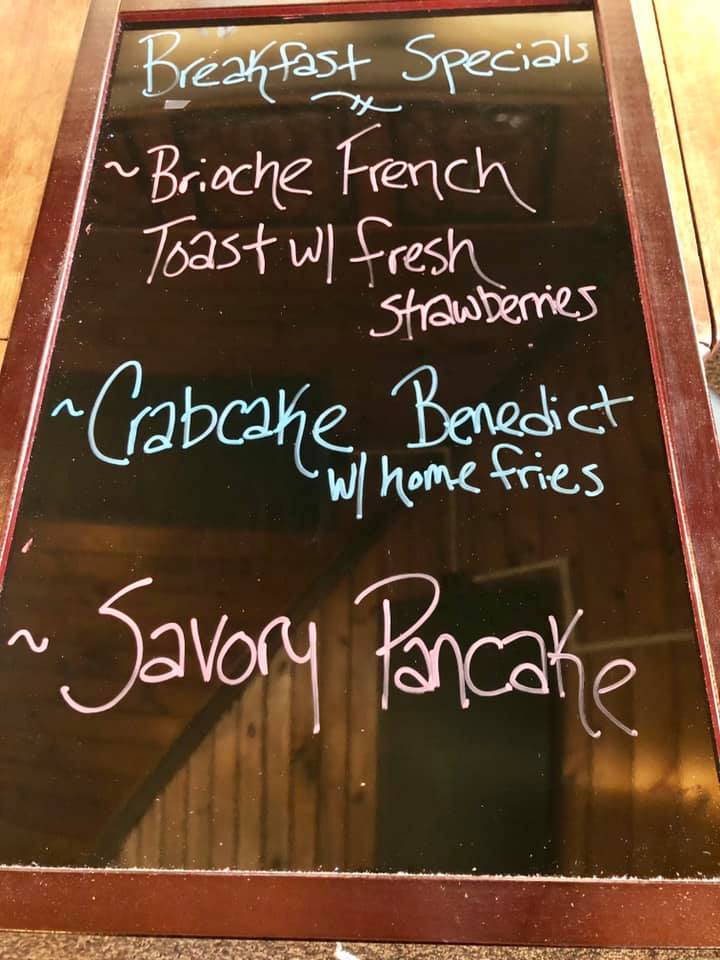 Breakfast Specials
~Brioche French
Toast w/ fresh
strawberries
~Crabcake Benedict
w/ home fries
~Savory Pancake